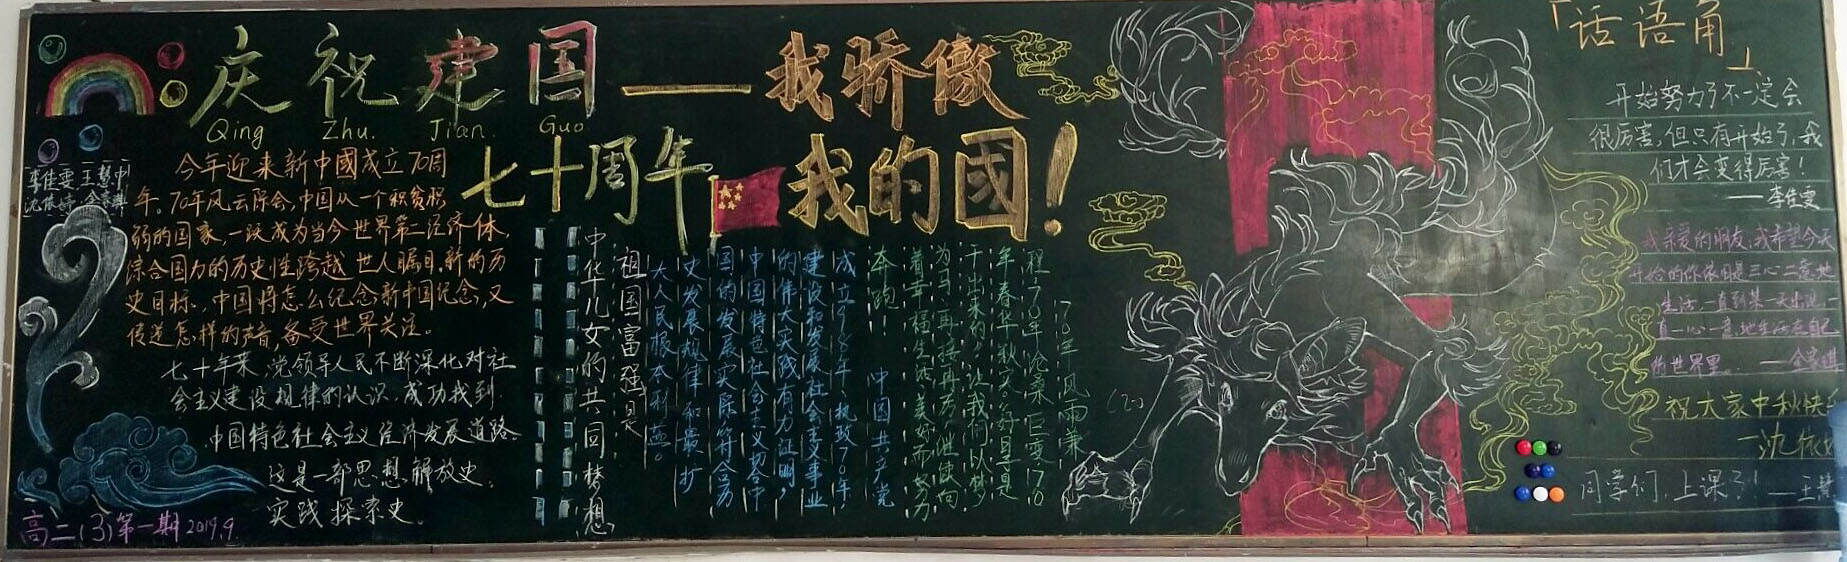 庆祝建国——我骄傲
Qing Zhu. Jian. Guo
七十周年 我的國！
李佳雯 王慧中
今年迎来新中國成立70周
年。70年风云际会,中国从一个积贫积
弱的国家,一跃成为当今世界第二经济体,
综合国力的历史性跨越,世人瞩目,新的历
史目标,中国将怎么纪念新中国纪念,又
传递怎样的声音,备受世界关注。
七十年来,党领导人民不断深化对社
会主义建设规律的认识,成功找到
中国特色社会主义经济发展道路。
这是一部思想解放史,
实践探索史。
高二(3)第一期 2019.9.
70年风雨兼
程,70年沧桑巨变,70
年春华秋实。好日子是
干出来的,让我们以梦
为马,再接再厉,继续向
着幸福生活美好而努力
奔跑！ 中国共产党
成立98年、执政70年,
建设和发展社会主义事业
的伟大实践有力证明,
中国特色社会主义契合中
国的发展实际,符合历
史发展规律和最广
大人民根本利益。
祖国富强是
中华儿女的共同梦想
「话语角」
开始努力了不一定会
很厉害,但只有开始了,我
们才会变得厉害！
——李佳雯
我亲爱的朋友,我希望今天
开始的你依旧是三心二意地
生活
直一心一意地生活在自己
的世界里。
祝大家中秋快
同学们,上课了！